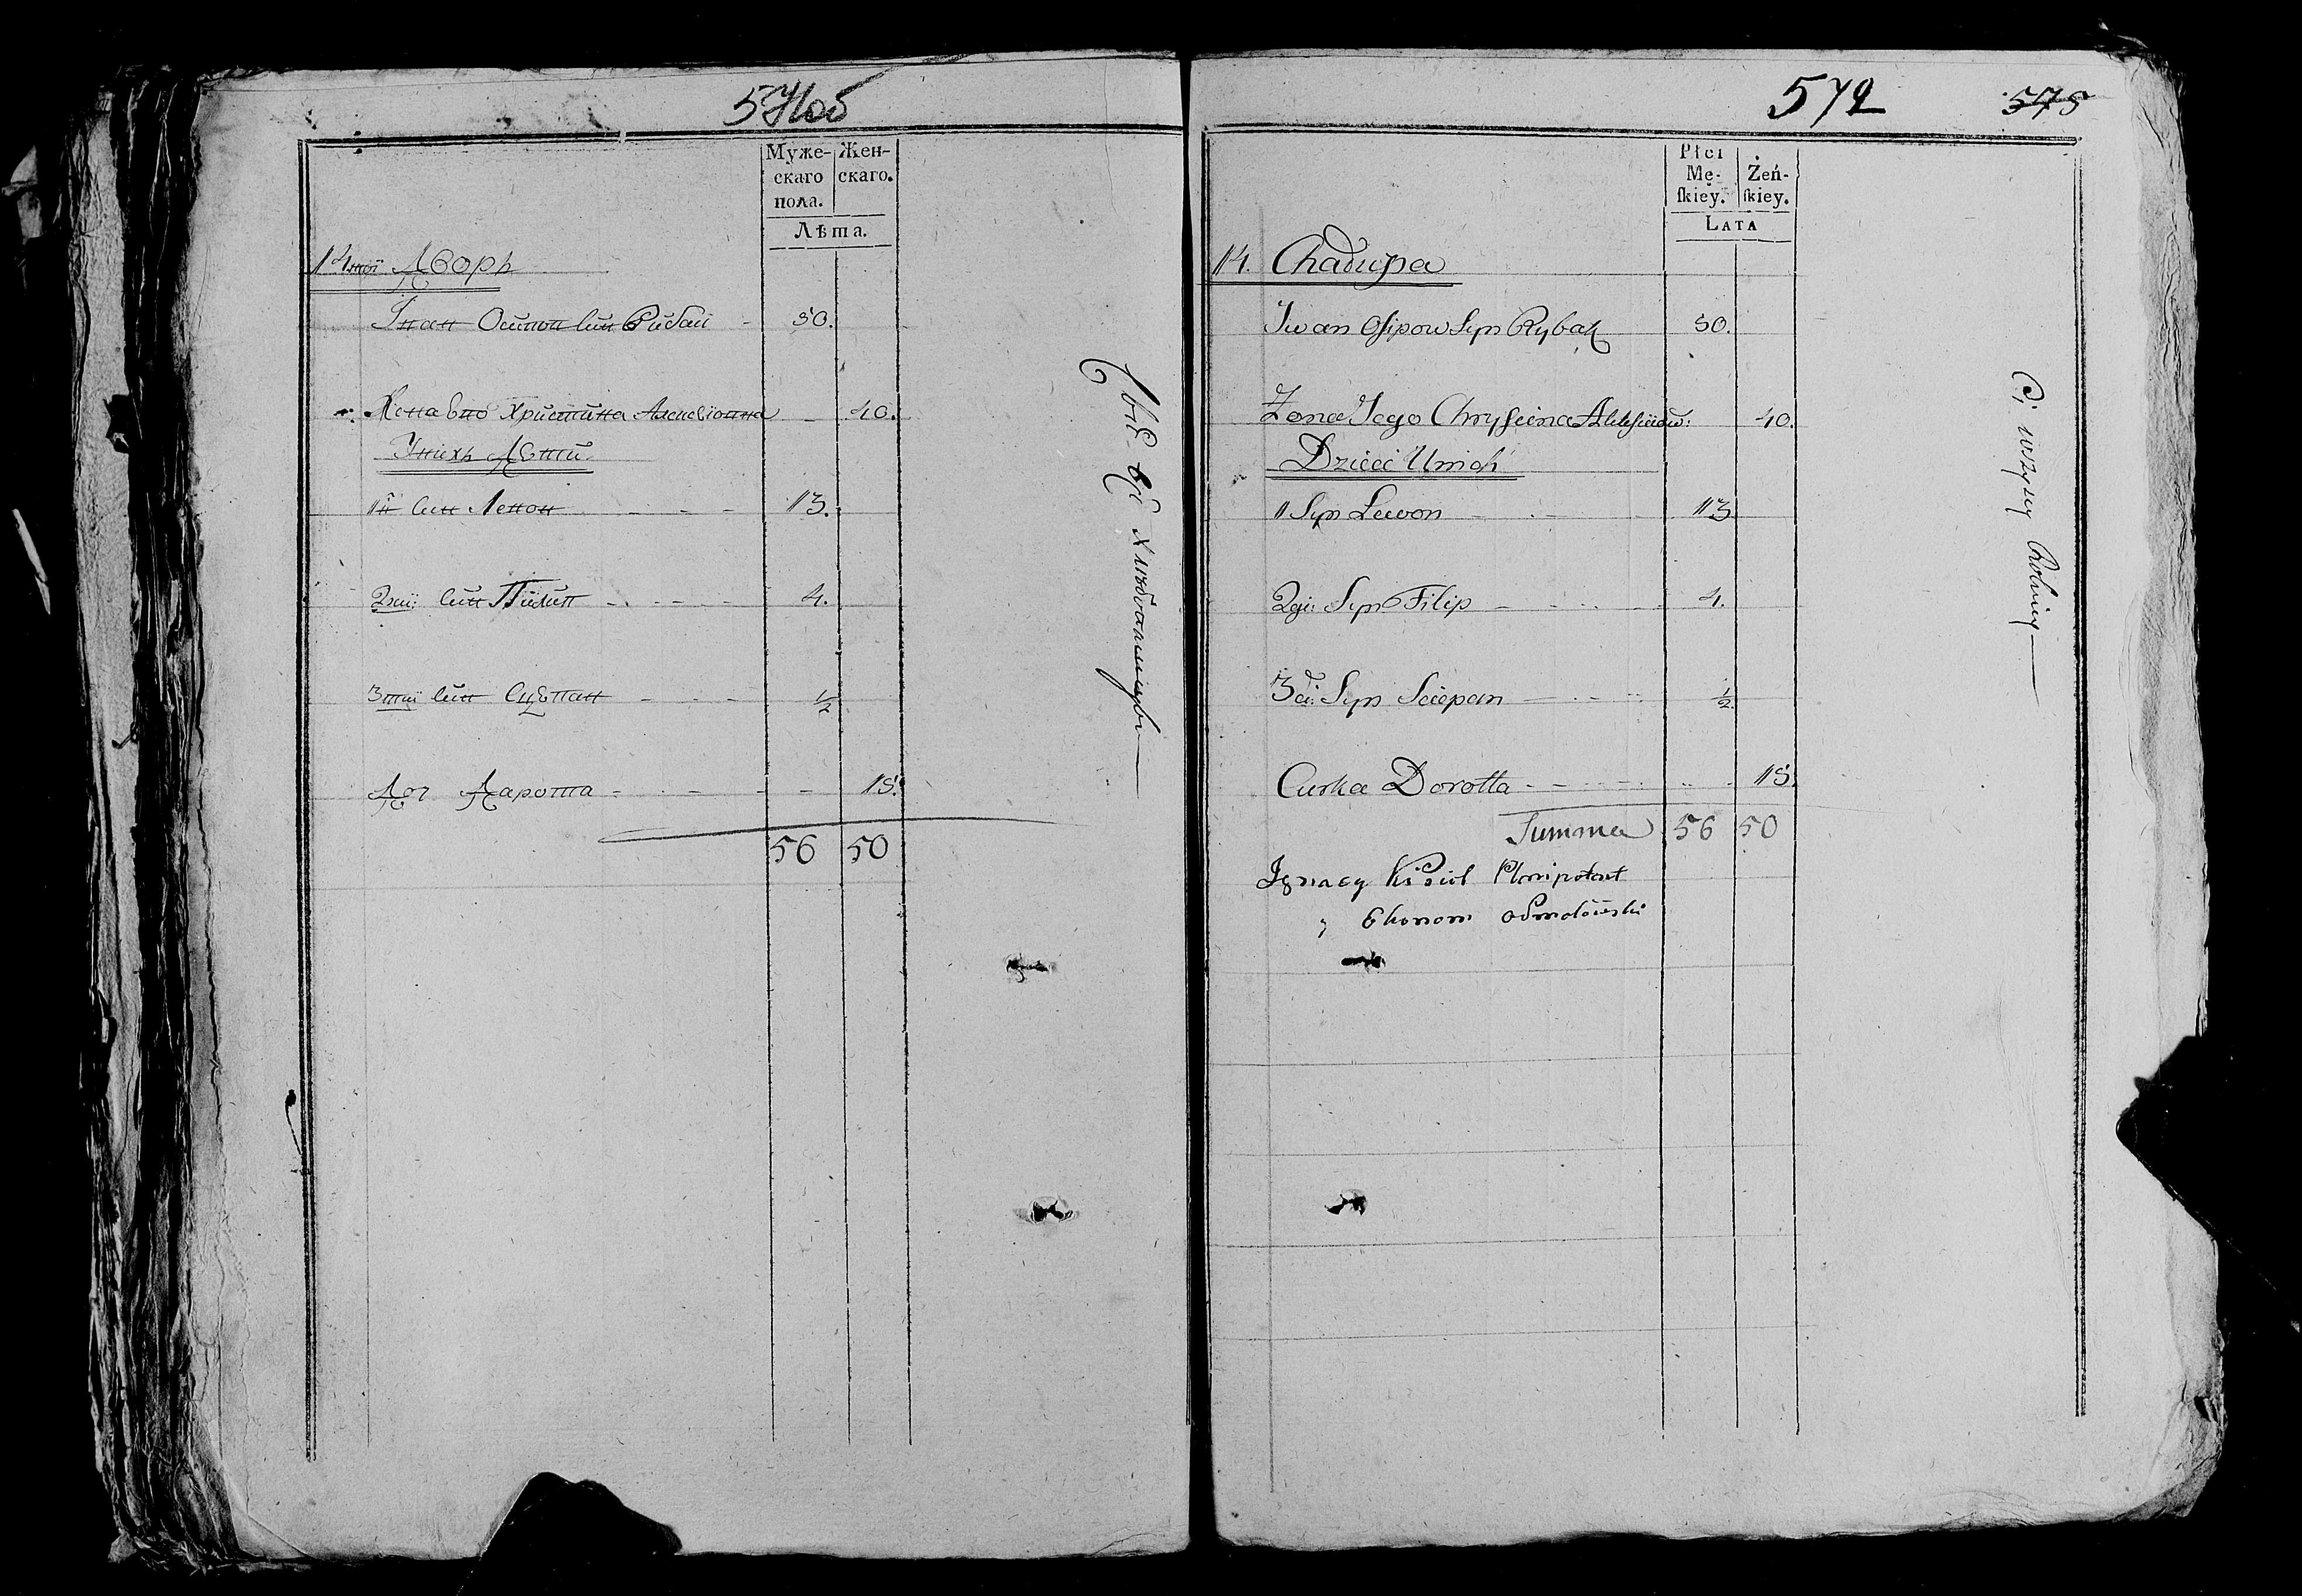 571об
Муже-
скаго
пола.
Жен-
скаго.
Лѣта.
14тый Дворъ
Іван Осипов син Рибак 50.
Жена Ево Христина Алексіовна 40.
Уніхъ Дѣти
1й син Левон 13.
2гий син Пилип 4.
3тий син Сцѣпан 1/2
Доч Дарота 15.
56 50
572
575
Płci
Mę-
ſkiey.
Żeń-
ſkiey.
LATA
14. Chałupa
Iwan Osipow Syn Rybak 50.
Zona Jego Chryscina Aleksiiow: 40.
Dzieci Unich
1 Syn Lewon 13
2gi: Syn Filip 4.
3ci: Syn Sciepan 1/2
Curka Dorotta 15.
Summa 56 50
Ignacy Kisiel Plenipotent
Ekonom
Ci wszyscy Rolnicy